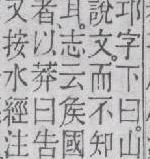 邛字下曰。山
說文。而不知
耳。志云矦國
者以莽曰告
又按水經注